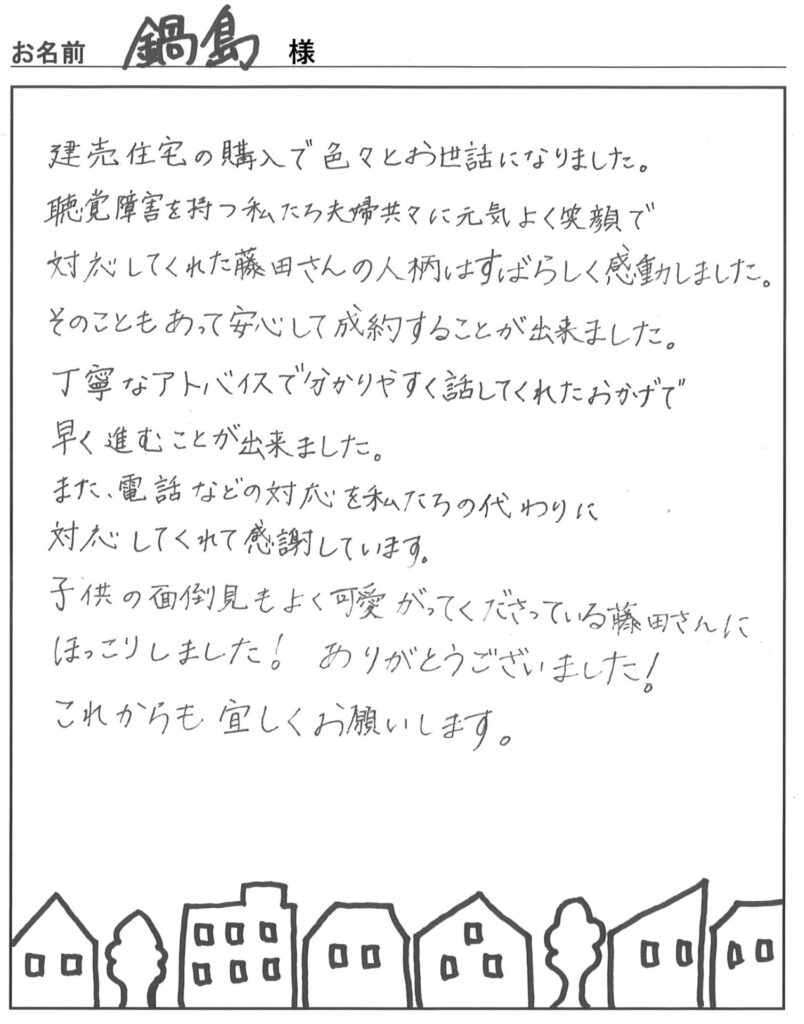 お名前 鍋島 様
建売住宅の購入で色々とお世話になりました。
聴覚障害を持つ私たち夫婦共々に元気よく笑顔で
対応してくれた藤田さんの人柄はすばらしく感動しました。
そのこともあって安心して成約することが出来ました。
丁寧なアドバイスで分かりやすく話してくれたおかげで
早く進むことが出来ました。
また、電話などの対応を私たちの代わりに
対応してくれて感謝しています。
子供の面倒見もよく可愛がってくださっている藤田さんに
ほっこりしました! ありがとうございました!
これからも宜しくお願いします。